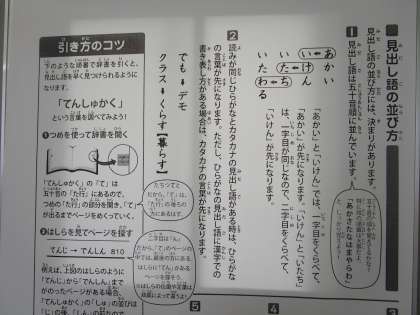 見出し語の並び方
見出し語の並び方には、決まりがあります。
1 見出し語は五十音順に並んでいます。
「あかさたなはまやらわ」
あかい
いけん
いたち
いわたる
「あかい」と「いけん」では、一字目をくらべて、
「あかい」が先になります。「いけん」と「いたち」
は、一字目が同じなので、二字目をくらべて、
「いけん」が先になります。
2 読みが同じひらがなとカタカナの見出し語がある時は、ひらがな
の言葉が先になります。ただし、ひらがなの見出し語に漢字での
書き表し方がある場合は、カタカナの言葉が先になります。
でも→デモ
クラス→くらす【暮らす】
引き方のコツ
下のような順番で辞書を引くと、
見出し語を早く見つけられるように
なります。
「てんしゅかく」
という言葉を調べてみよう!
❶つめを使って辞書を開く
「てんしゅかく」の「て」は
五十音の「た行」にあるので、
つめの「た行」の部分を開き、「て」
が出るまでページをめくっていく。
❷はしらを見てページを探す
てんじ → でんしん 810
例えば、上図のはしらのように
「てんじ」から「でんしん」まで
がのったページがある場合、
「てんしゅかく」の「しゅ」の並びは
5
4
3